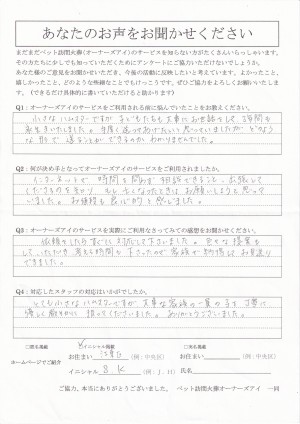 あなたのお声をお聞かせください
まだまだペット訪問火葬(オーナーズアイ)のサービスを知らない方がたくさんいらっしゃいます。
その方たちに少しでも知っていただくためにアンケートにご協力いただけないでしょうか。
あなた様のご意見をお聞かせいただき、今後の活動に反映したいと考えています。よかったこと、
嬉しかったこと、どのような些細なことでもけっこうです。ぜひご協力をよろしくお願いいたします。
(できるだけ具体的に書いていただけると助かります)
Q1:オーナーズアイのサービスをご利用される前に悩んでいたことをお教えください。
小さなハムスターですが 子どもたちも大事にお世話をして、2年間も
長生きしました。
Q2:何が決め手となってオーナーズアイのサービスをご利用されましたか。
インターネットで 時間も問わず 相談できること、
お願いしようと思って
いました。お値段も良心的と感じました。
Q3:オーナーズアイのサービスを実際にご利用なさってみての感想をお聞かせください。
依頼をしたらすぐに対応して下さいました。色々な提案も
して いただき、考える時間も下さったので 家族で納得して お見送り
できました。
Q4:対応したスタッフの対応はいかがでしたか。
とても小さなハムスターですが、大事な家族の一員の子を 丁寧に
優しく 扱ってくださいました。ありがとうございました。
□匿名掲載
☑イニシャル掲載
□実名掲載
ホームページでご紹介
お住まい 江東区 (例:中央区)
イニシャル S.K (例:J.H)
お住まい (例:中央区)
氏名
ご協力、本当にありがとうございました。 ペット訪問火葬オーナーズアイ 一同